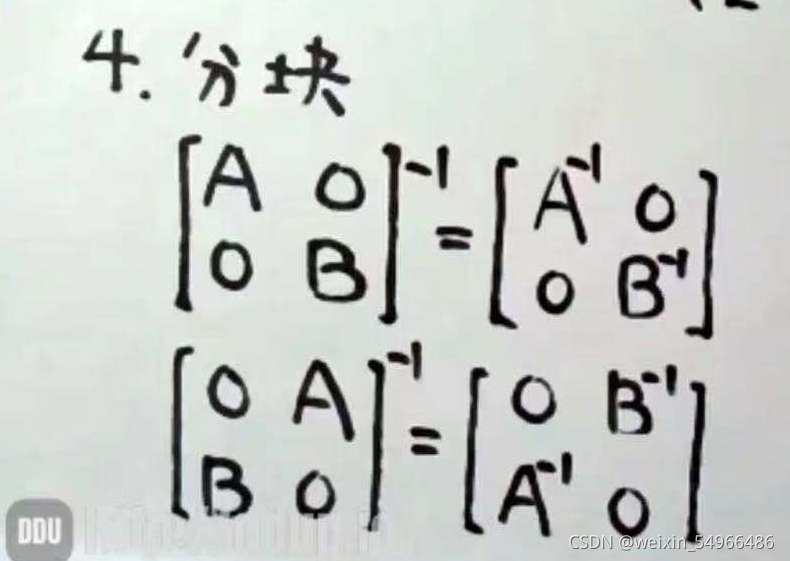 4. 分块
[A 0
0 B]⁻¹ = [A⁻¹ 0
0 B⁻¹]
[0 A
B 0]⁻¹ = [0 B⁻¹
A⁻¹ 0]
DDU
CSDN @weixin_54966486